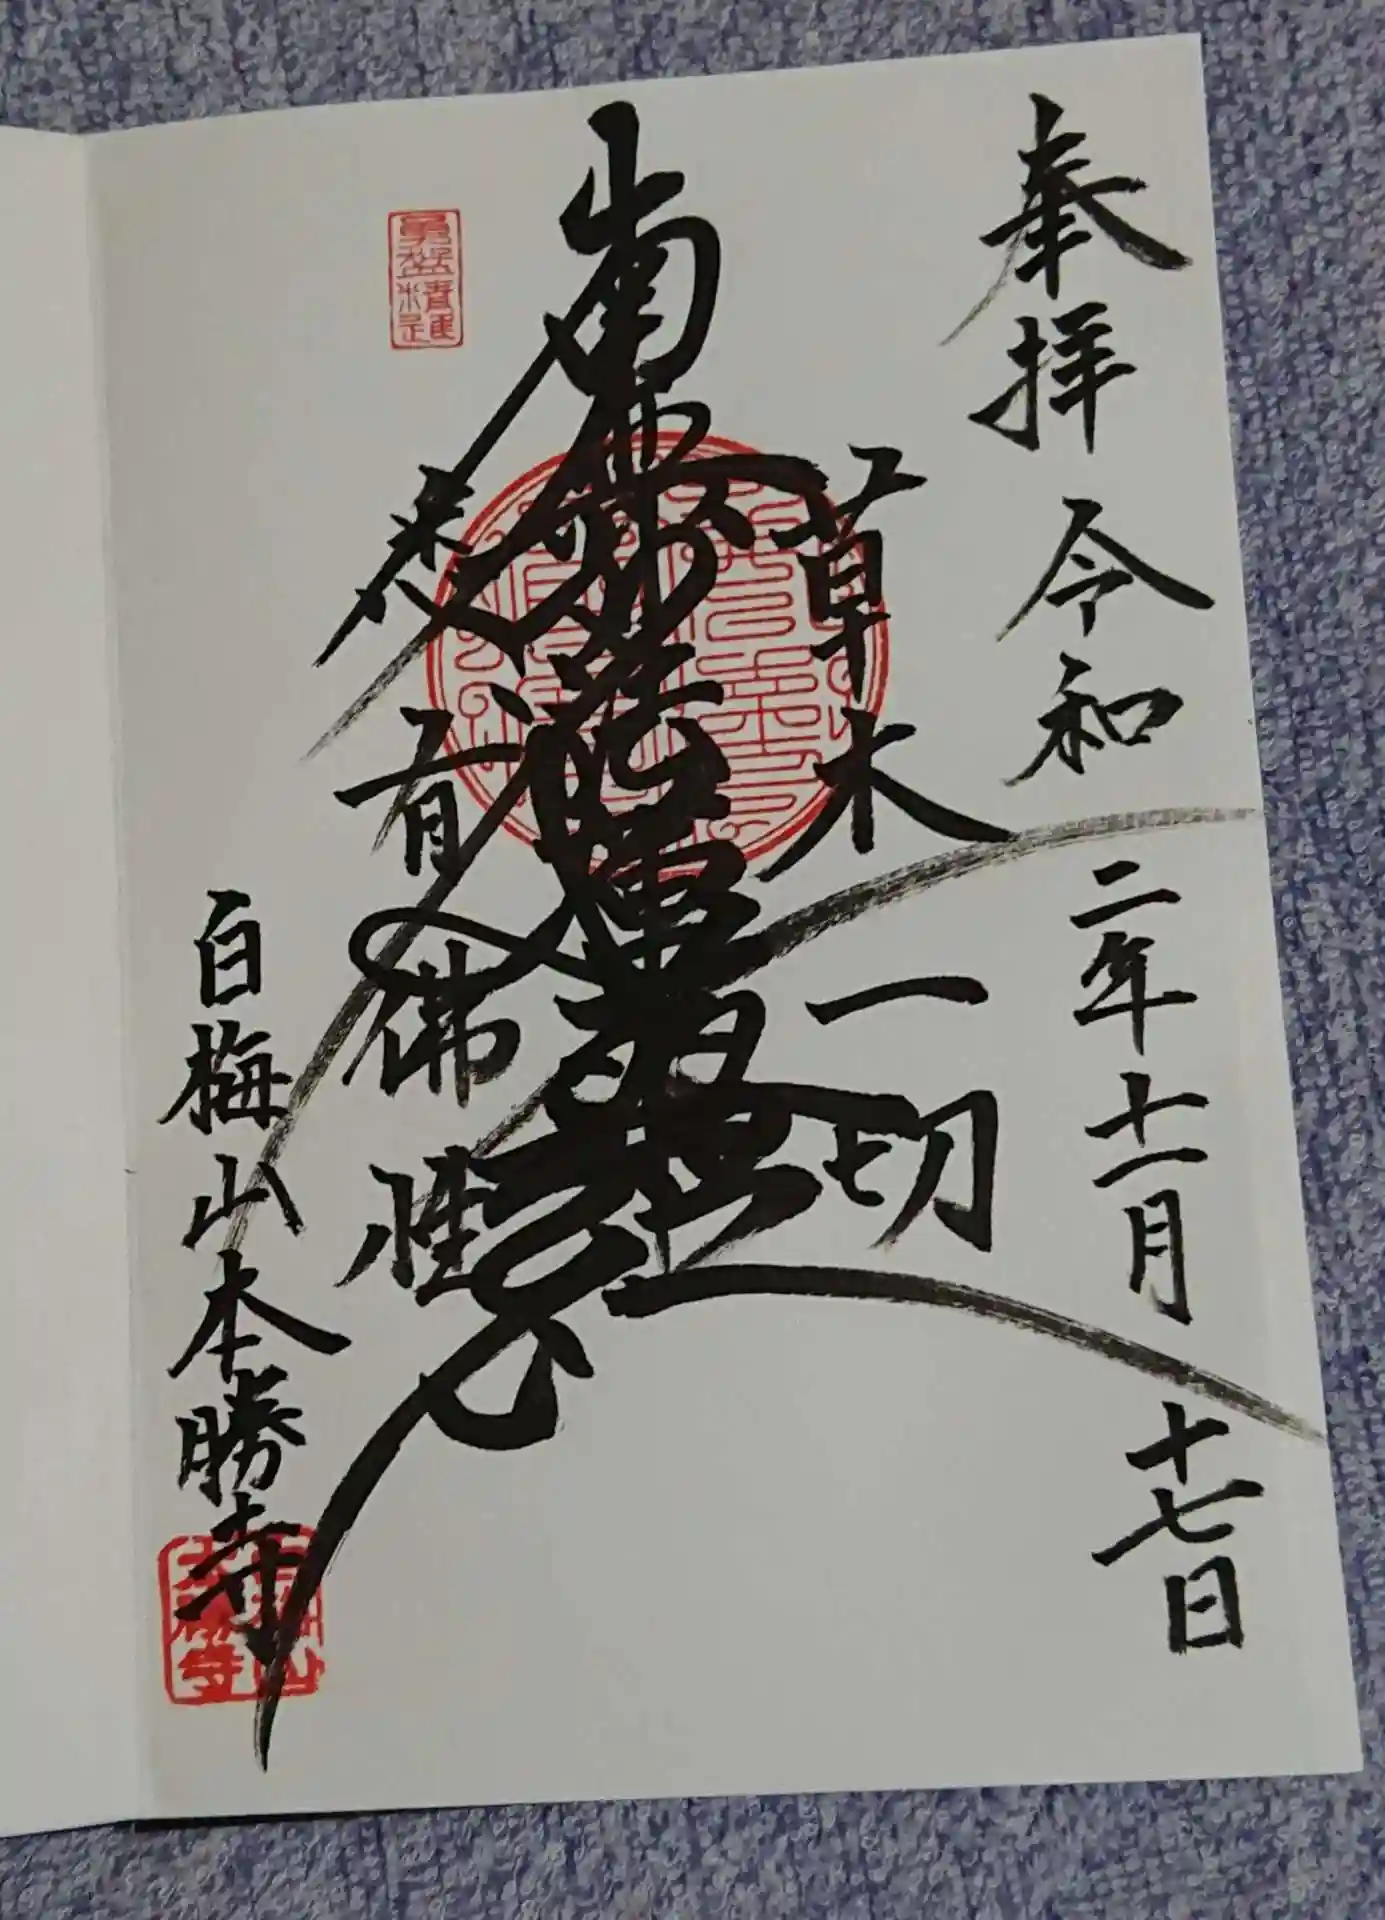 奉拝 令和二年十一月十七日
草木一切
南無妙法蓮華経
悉有佛性
白梅山本勝寺
勇猛精進